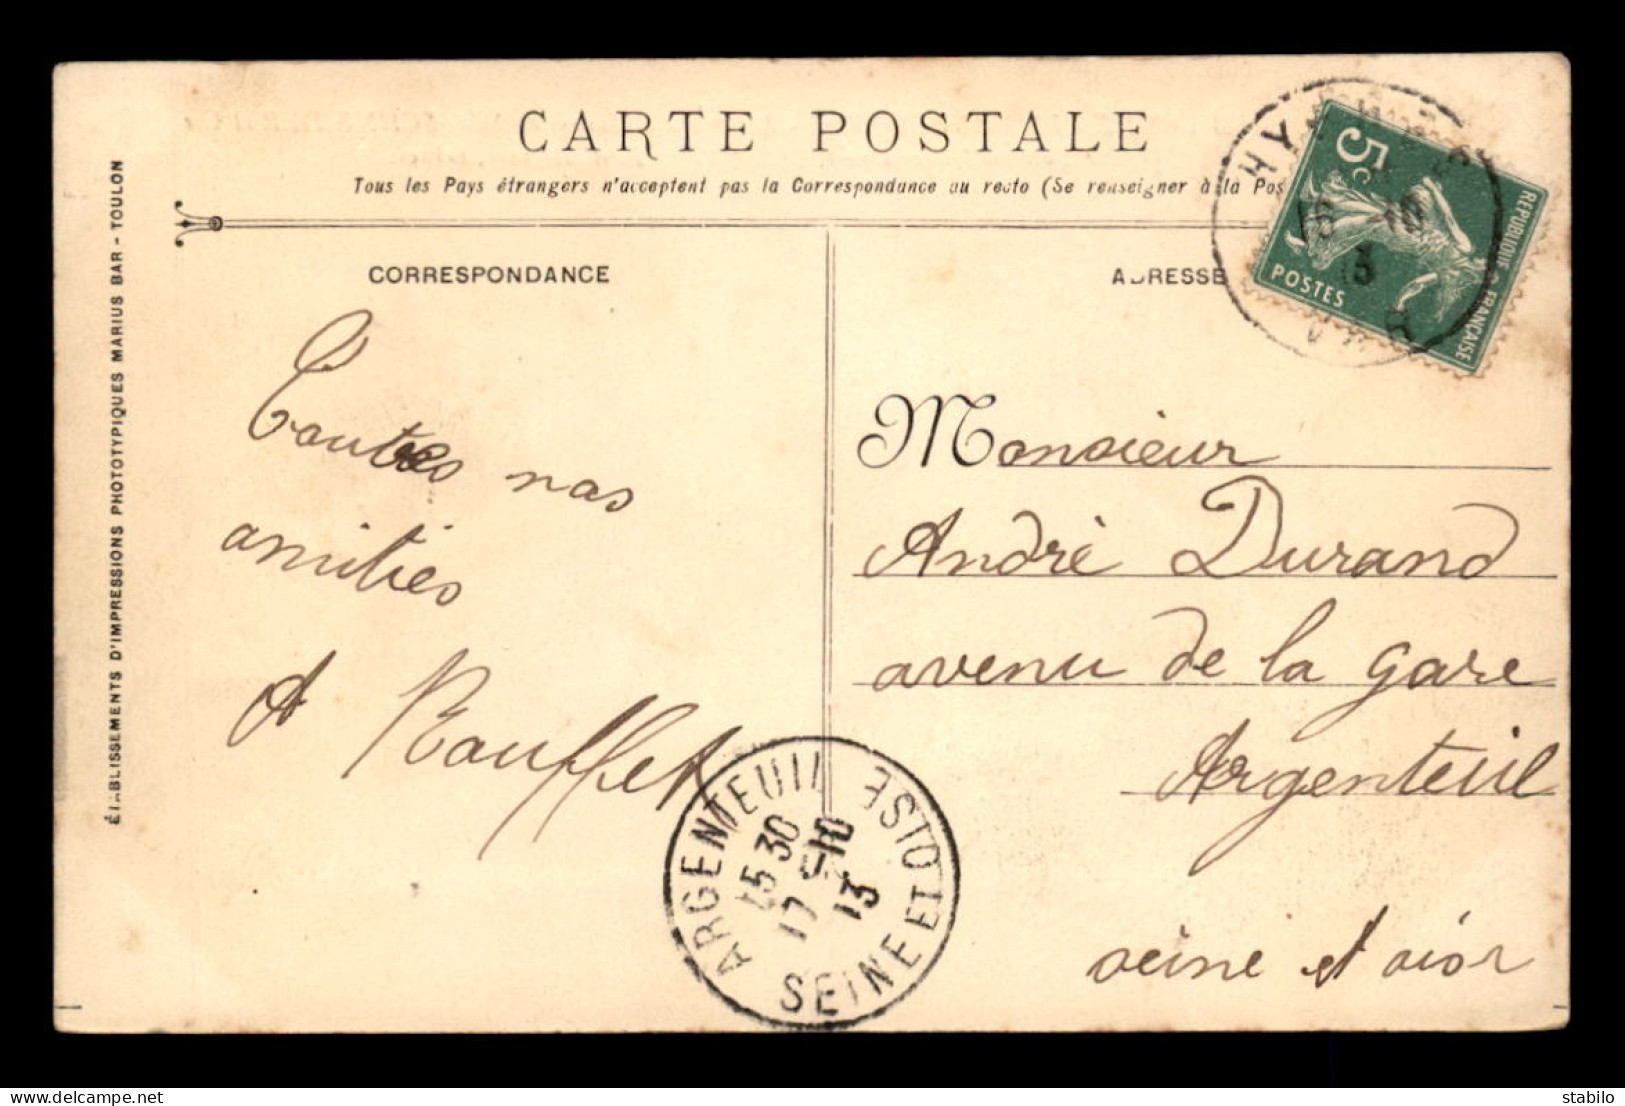 CARTE POSTALE
Tous les Pays étrangers n'acceptent pas la Correspondance au recto (Se renseigner à la Pos
ÉTABLISSEMENTS D'IMPRESSIONS PHOTOTYPIQUES MARIUS BAR - TOULON
CORRESPONDANCE
Toutes nos
amitiés
A Rouffet
ADRESSE
Monsieur
André Durand
avenue de la gare
Argenteuil
seine et oise
5c
POSTES
REPUBLIQUE FRANÇAISE
ARGENTEUIL
SEINE ET OISE
15 30
17 - 10
13
delcampe.net
stabilo